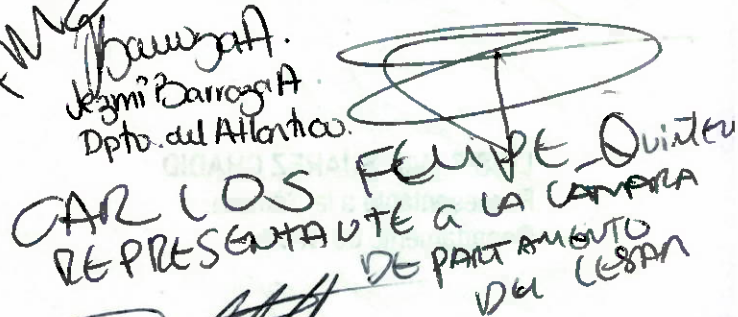 BarrozaA.
Jezmi Barroza A
Dpto. del Atlantico.
CARLOS FELIPE Quintero
REPRESENTANTE a LA CAMARA
DEPARTAMENTO
DEL CESAR